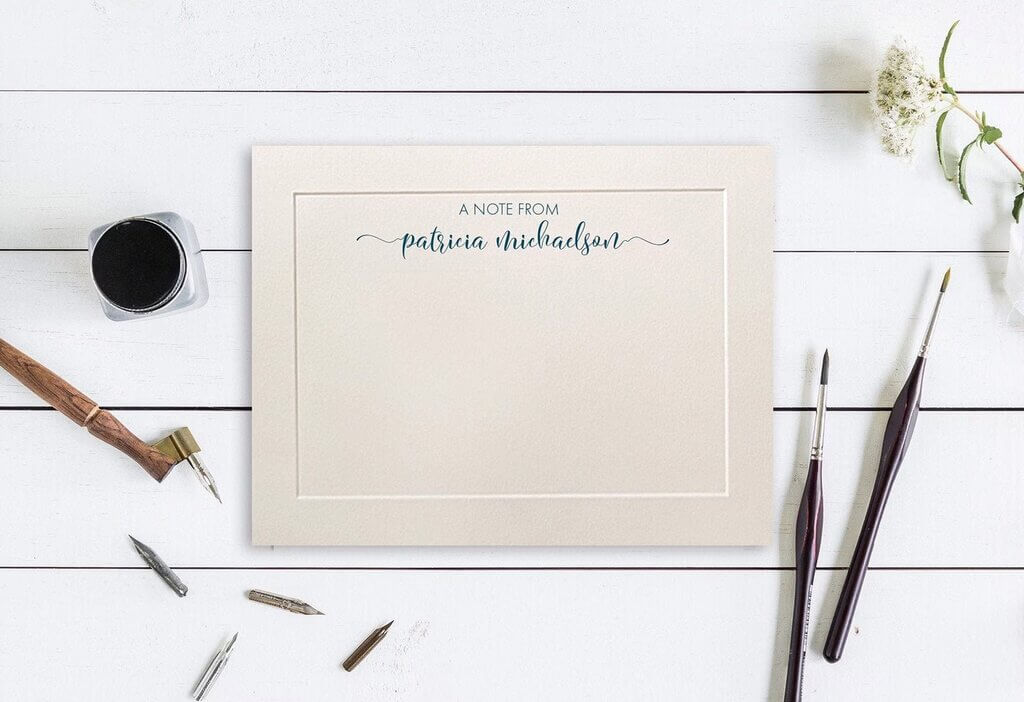 A NOTE FROM
patricia michaelson